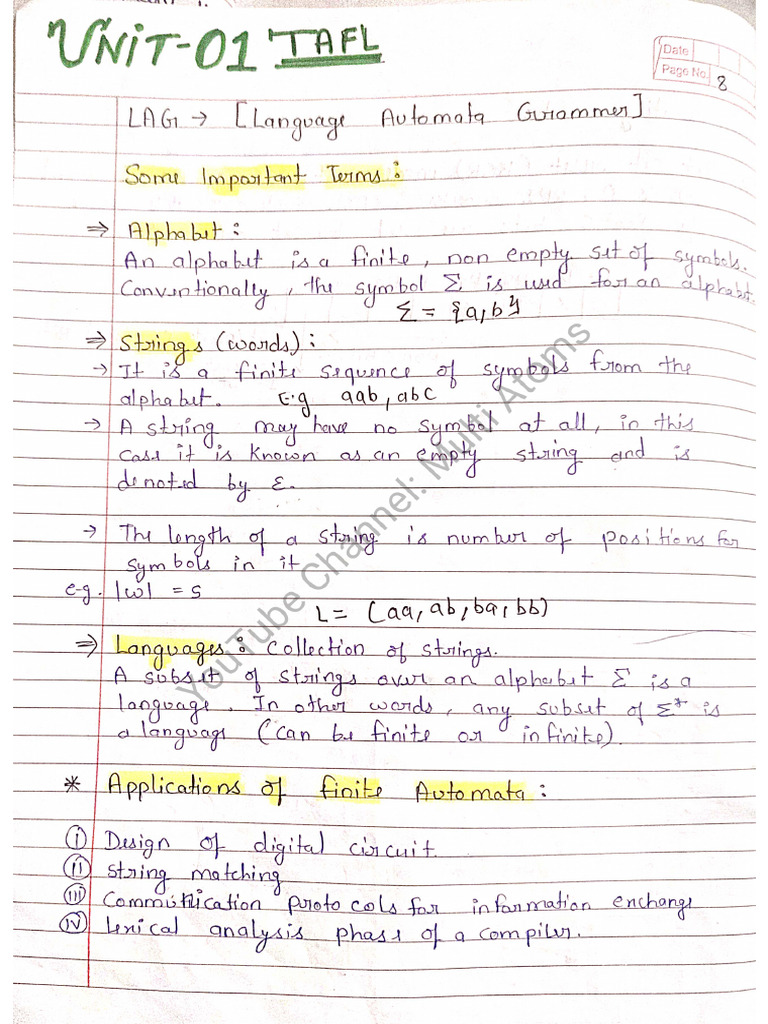 UNIT-01 TAFL
Date
Page No. 8
LAG → [Language Automata Grammer]
Some Important Terms :
⇒ Alphabet :
An alphabet is a finite, non empty set of symbols.
Conventionally, the symbol Σ is used for an alphabet.
Σ = {a,b}
⇒ Strings (words) :
→ It is a finite sequence of symbols from the
alphabet. E.g aab, abc
→ A string may have no symbol at all, in this
case it is known as an empty string and is
denoted by ε.
→ The length of a string is number of positions for
symbols in it
e.g. |w| = 5
L = (aa, ab, ba, bb)
⇒ Languages : Collection of strings.
A subset of strings over an alphabet Σ is a
language. In other words, any subset of Σ* is
a language (can be finite or infinite).
* Applications of finite Automata :
(i) Design of digital circuit.
(ii) String matching
(iii) Communication protocols for information enchange
(iv) Lexical analysis phase of a compiler.
YouTube Channel: Multi Atoms